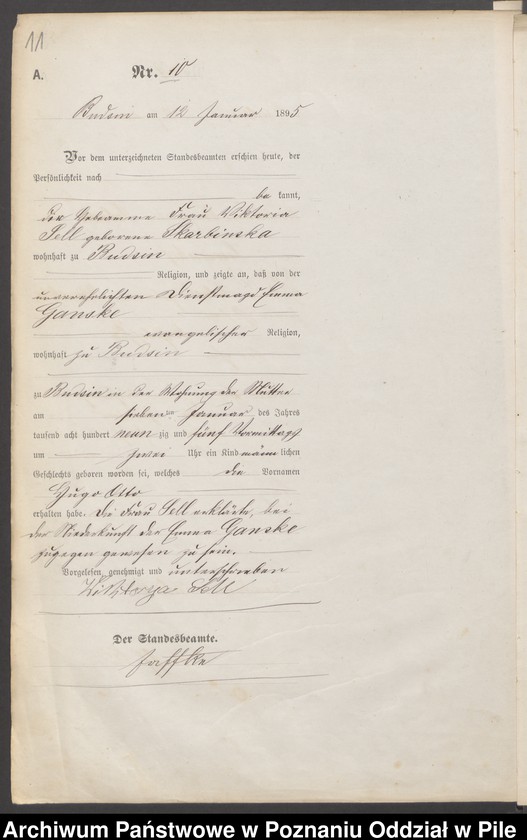 11
A.
Nr. 10
Budsin am 12 Januar 1895
Vor dem unterzeichneten Standesbeamten erschien heute, der
Persönlichkeit nach
be kannt,
die Hebeamme Frau Viktoria
Sell geborene Skarbinska
wohnhaft zu Budsin
Religion, und zeigte an, daß von der
unverehelichten Dienstmagd Emma
Ganske
evangelischer Religion,
wohnhaft zu Budsin
zu Budsin in der Wohnung der Mutter
am sieben ten Januar des Jahres
tausend acht hundert neun zig und fünf Vormittags
um zwei Uhr ein Kind männ lichen
Geschlechts geboren worden sei, welches die Vornamen
Hugo Otto
erhalten habe. Die Frau Sell erklärte, bei
der Niederkunft der Emma Ganske
zugegen gewesen zu sein.
Vorgelesen, genehmigt und unterschrieben
Sell
Der Standesbeamte.
Jaffke
Archiwum Państwowe w Poznaniu Oddział w Pile